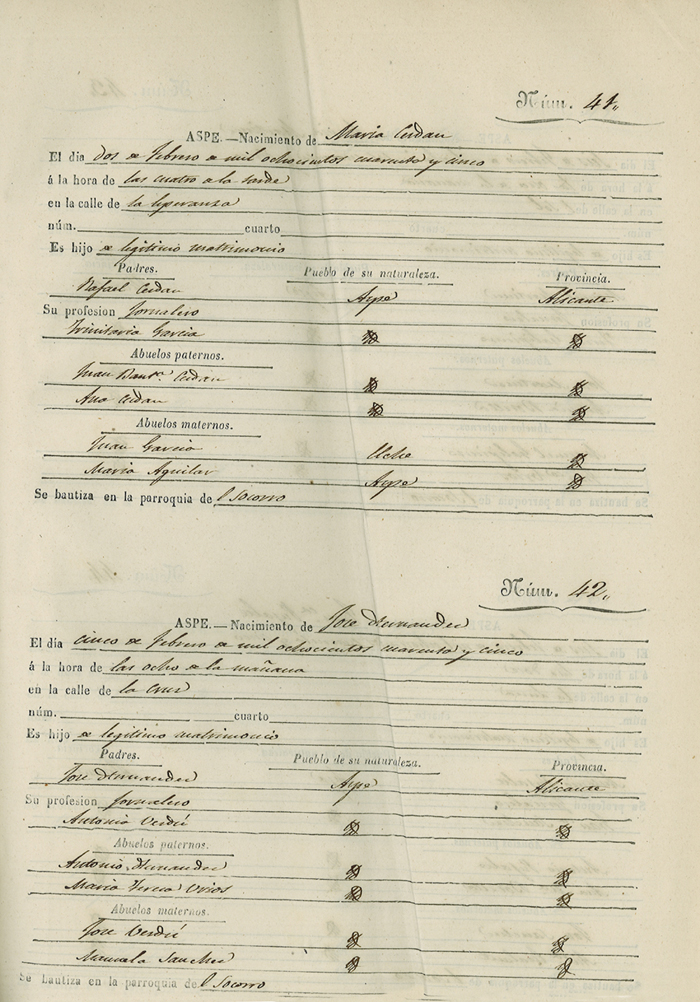 Núm. 41.
ASPE.—Nacimiento de Maria Cerdan
El dia dos de Febrero de mil ochocientos cuarenta y cinco
á la hora de las cuatro de la tarde
en la calle de la Esperanza
núm. cuarto
Es hijo de legitimo matrimonio
Padres. Pueblo de su naturaleza. Provincia.
Rafael Cerdan Aspe Alicante
Su profesion Jornalero
Trinitaria Garcia
Abuelos paternos.
Juan Baut.ª Cerdan
Ana Cerdan
Abuelos maternos.
Juan Garcia Elche
Maria Aguilar Aspe
Se bautiza en la parroquia del Socorro
Núm. 42.
ASPE.—Nacimiento de Jose Hernandez
El dia cinco de Febrero de mil ochocientos cuarenta y cinco
á la hora de las ocho de la mañana
en la calle de la Cruz
núm. cuarto
Es hijo de legitimo matrimonio
Padres. Pueblo de su naturaleza. Provincia.
Jose Hernandez Aspe Alicante
Su profesion Jornalero
Antonia Verdú
Abuelos paternos.
Antonio Hernandez
Maria Teresa
Abuelos maternos.
Jose Verdú
Manuela Sanchez
Se bautiza en la parroquia del Socorro